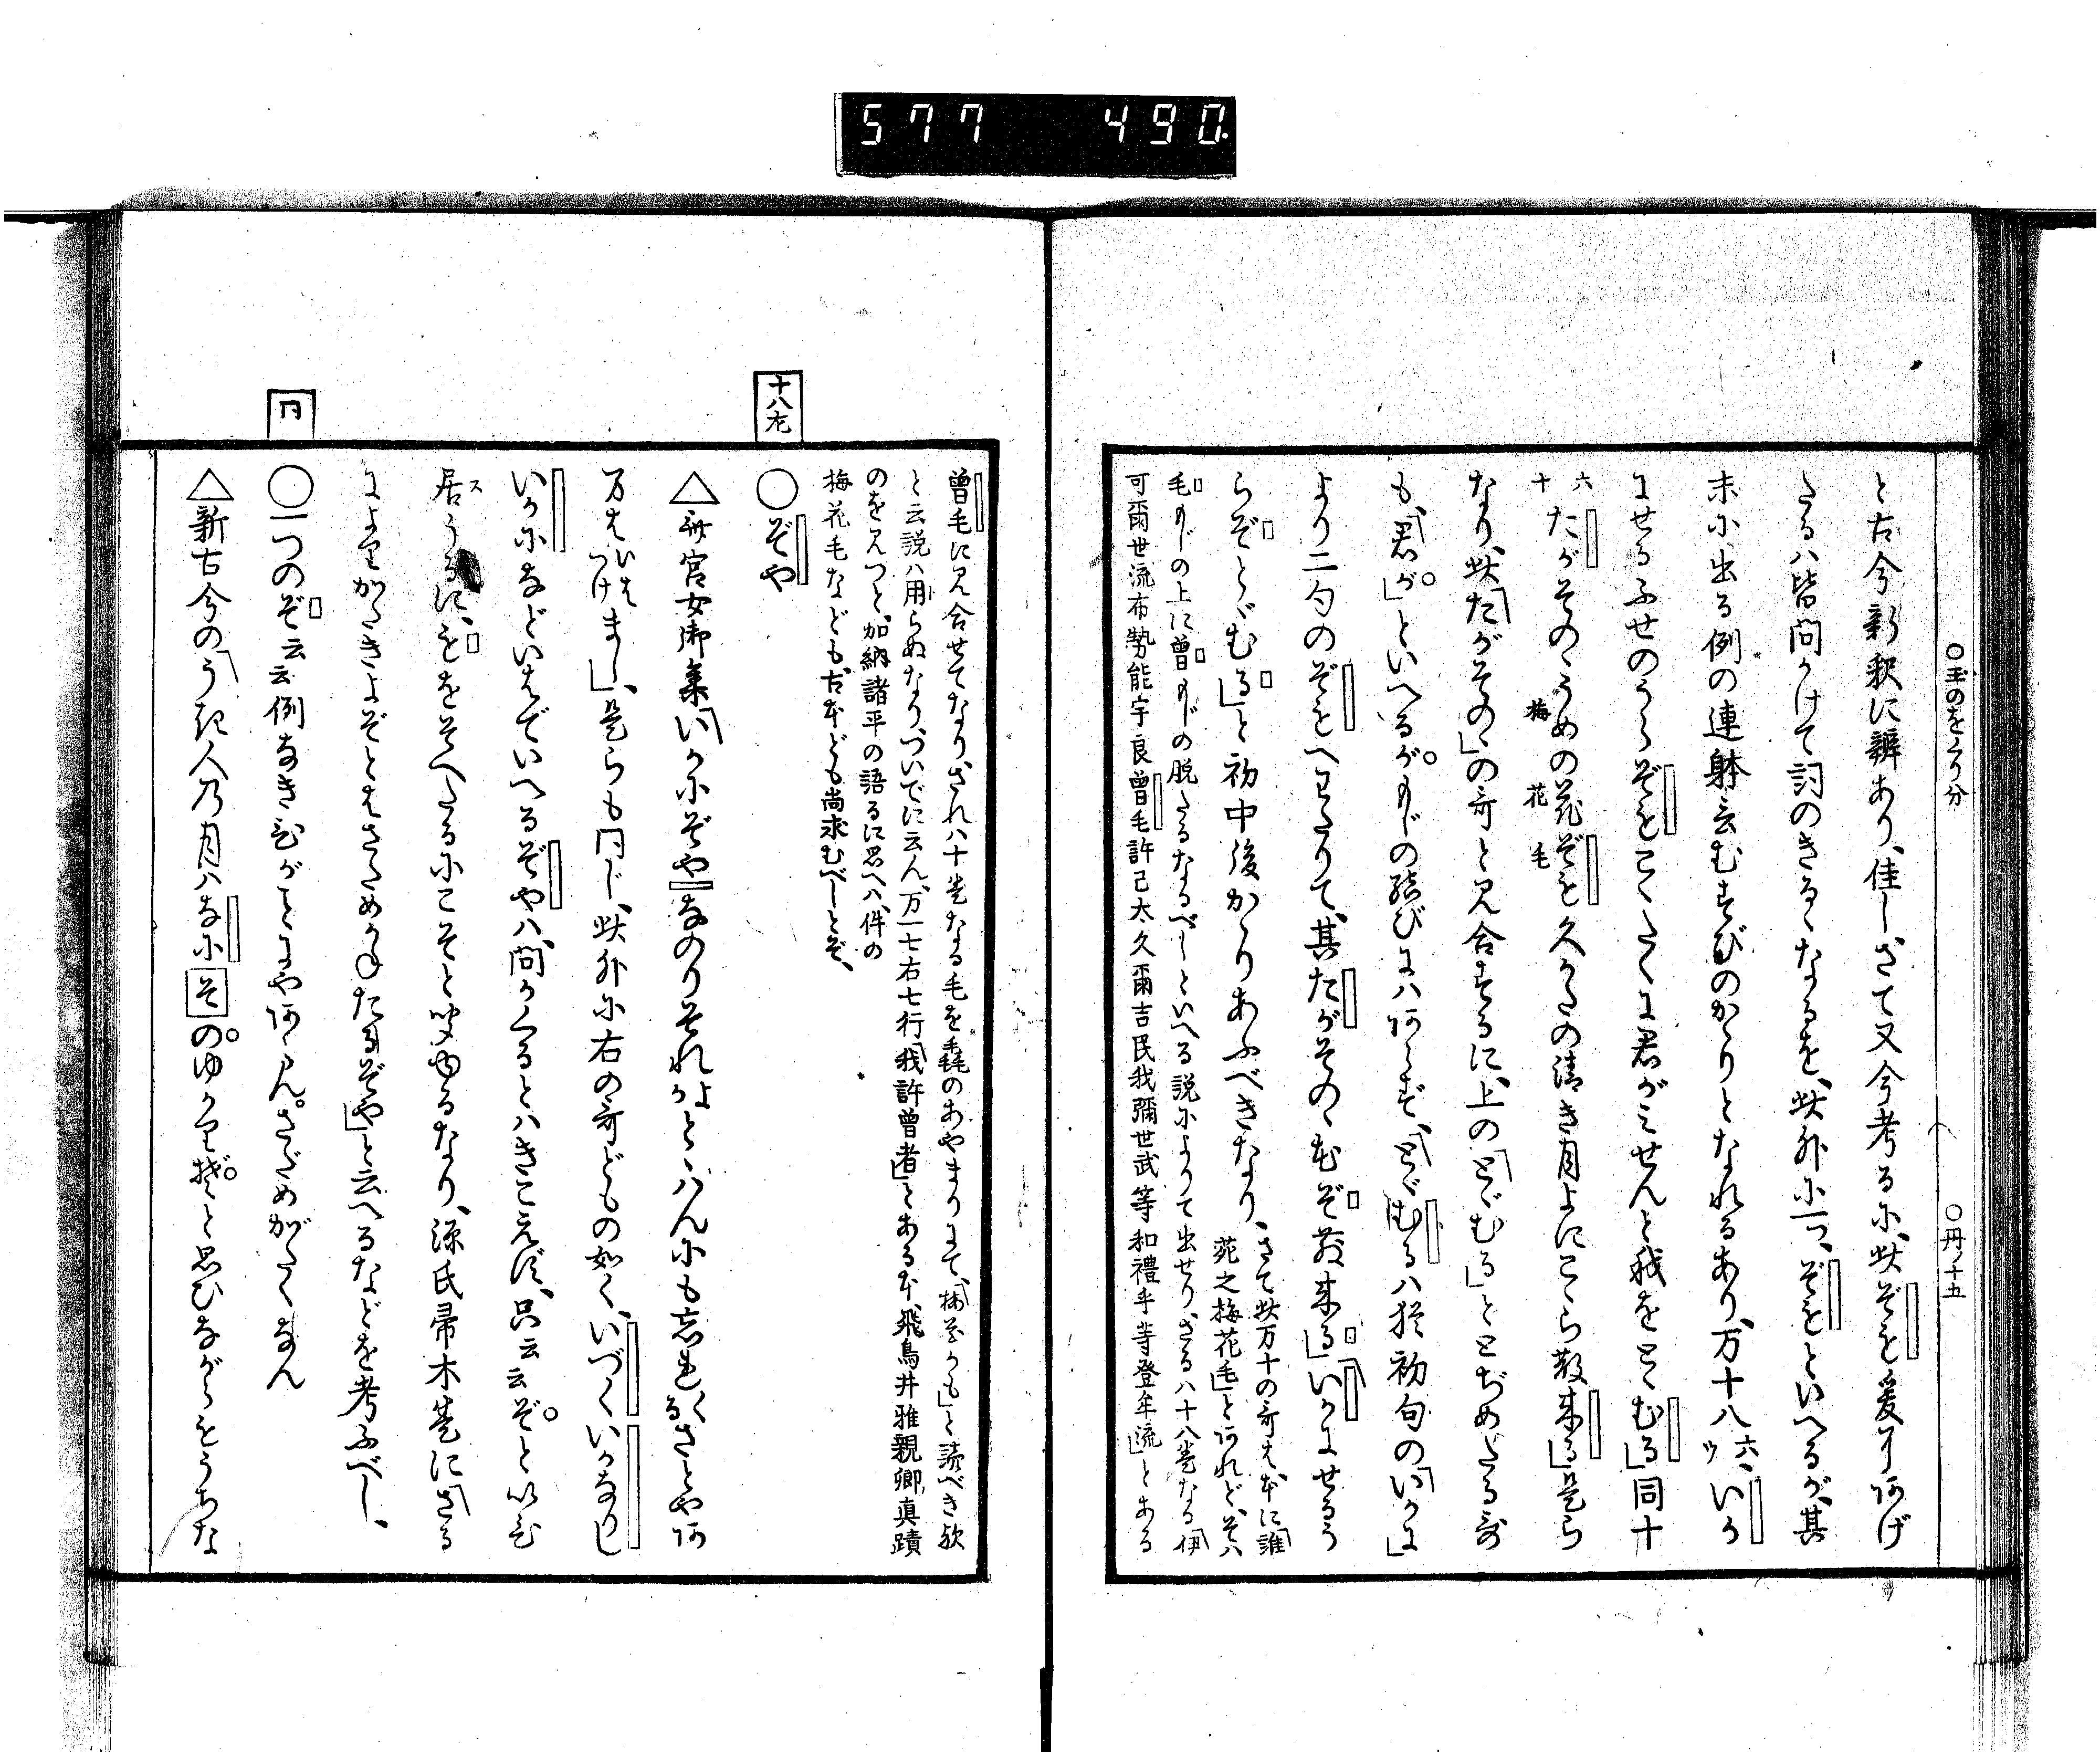 577 490.
○玉のをくり分 ○丹ノ十五
と古今新釈に辨あり、佳しさて又今考る小、此ぞを爰にあげ
たるハ皆問かけて詞のきるゝなるを、此外小一つ、ぞをといへるが、其
末小出る例の連躰言むすびのかゝりとなれるあり、万十八六ウ、いか
にせるふせのうらぞをこゝだくに君がミせんと我をとゞむる」同十
六十たがそのゝうめの花ぞを久かたの清き月よにこゝら散来る」是ら
梅 花 毛
なり、此「たがそのゝ」の哥と見合するに、上の「とゞむる」ととぢめたる哥
も、「君が」といへるがもじの結びにハあらず、「とゞむるハ猶初句の「いかに」
より二句のぞをへわたりて、其たがそのゝむぞ散来る」「いかにせるう
らぞとゞむる」と初中後かゝりあふべきなり、
さて此万十の哥を本に「誰
苑之梅花毛」とあれど、そハ
毛もじの上に曾もじの脱たるなるべしといへる説小よりて出せり、さるハ十八巻なる「伊
可爾世流布勢能宇良曾毛許己太久爾吉民我彌世武等和禮乎等登牟流」とある
曾毛に見合せてなり、されハ十巻なる毛を毳のあやまりにて、「梅花かも」と読べき欤
と云説ハ用らぬなり、ついでに云ん、万一七右七行「我許曾者」とある本、飛鳥井雅親卿真蹟
のを見つと、加納諸平の語るに思へハ、件の
梅花毛なども、古本ども尚求むべしとぞ、
十八左
○ぞや
△斎宮女御集「いか小ぞやなのりそれかとゝハん小も忘るゝさとやあ
万をひをつけまし」、是らも同じ、此外小右の哥どもの如く、いづくいかなりし
いか小などいはでいへるぞやハ、問かくるとハきこえず、只云云ぞといひ
居うるに、ををそへたる小こそと聞ゆるなり、源氏帚木巻に「さる
によりかたきよぞとはさためかねたるぞや」と云へるなどを考ふべし、
同
○一つのぞ云云例なきひがことにやあらん。さだめがたくなん
△新古今の「うき人の月ハな小そのゆかりぞと思ひながらもうちな